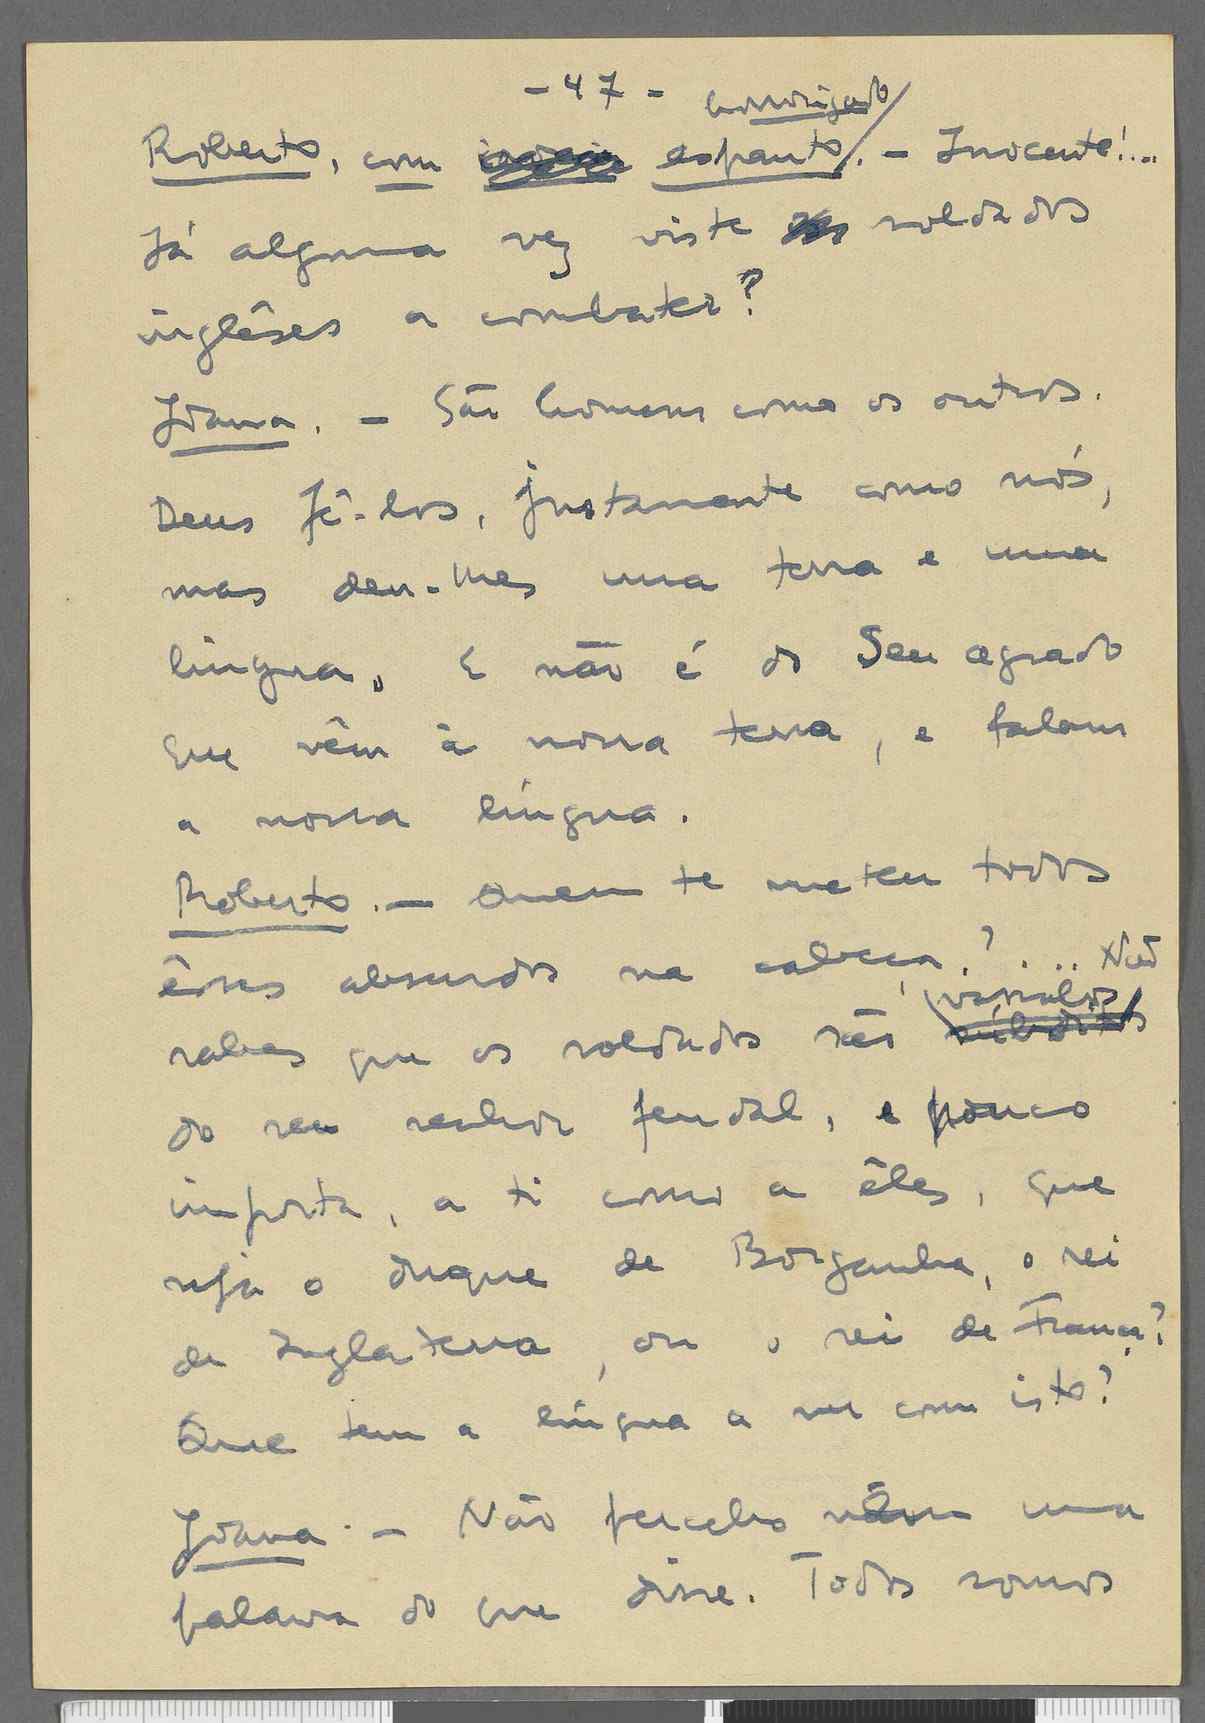 - 47 -
horrorizado
Roberto, com espanto. - Inocente!...
Já alguma vez viste soldados
inglêses a combater?
Joana. - São homens como os outros.
Deus fê-los, justamente como nós,
mas deu-lhes uma terra e uma
língua. E não é do Seu agrado
que vêm à nossa terra, e falam
a nossa língua.
Roberto. - Quem te meteu todos
êsses absurdos na cabeça?... Não
vassalos
sabes que os soldados são súbditos
do seu senhor feudal, e pouco
importa, a ti como a êles, que
seja o duque de Borganha, o rei
de Inglaterra, ou o rei de França?
Que tem a língua a ver com isto?
Joana. - Não percebo nem uma
palavra do que disse. Todos somos